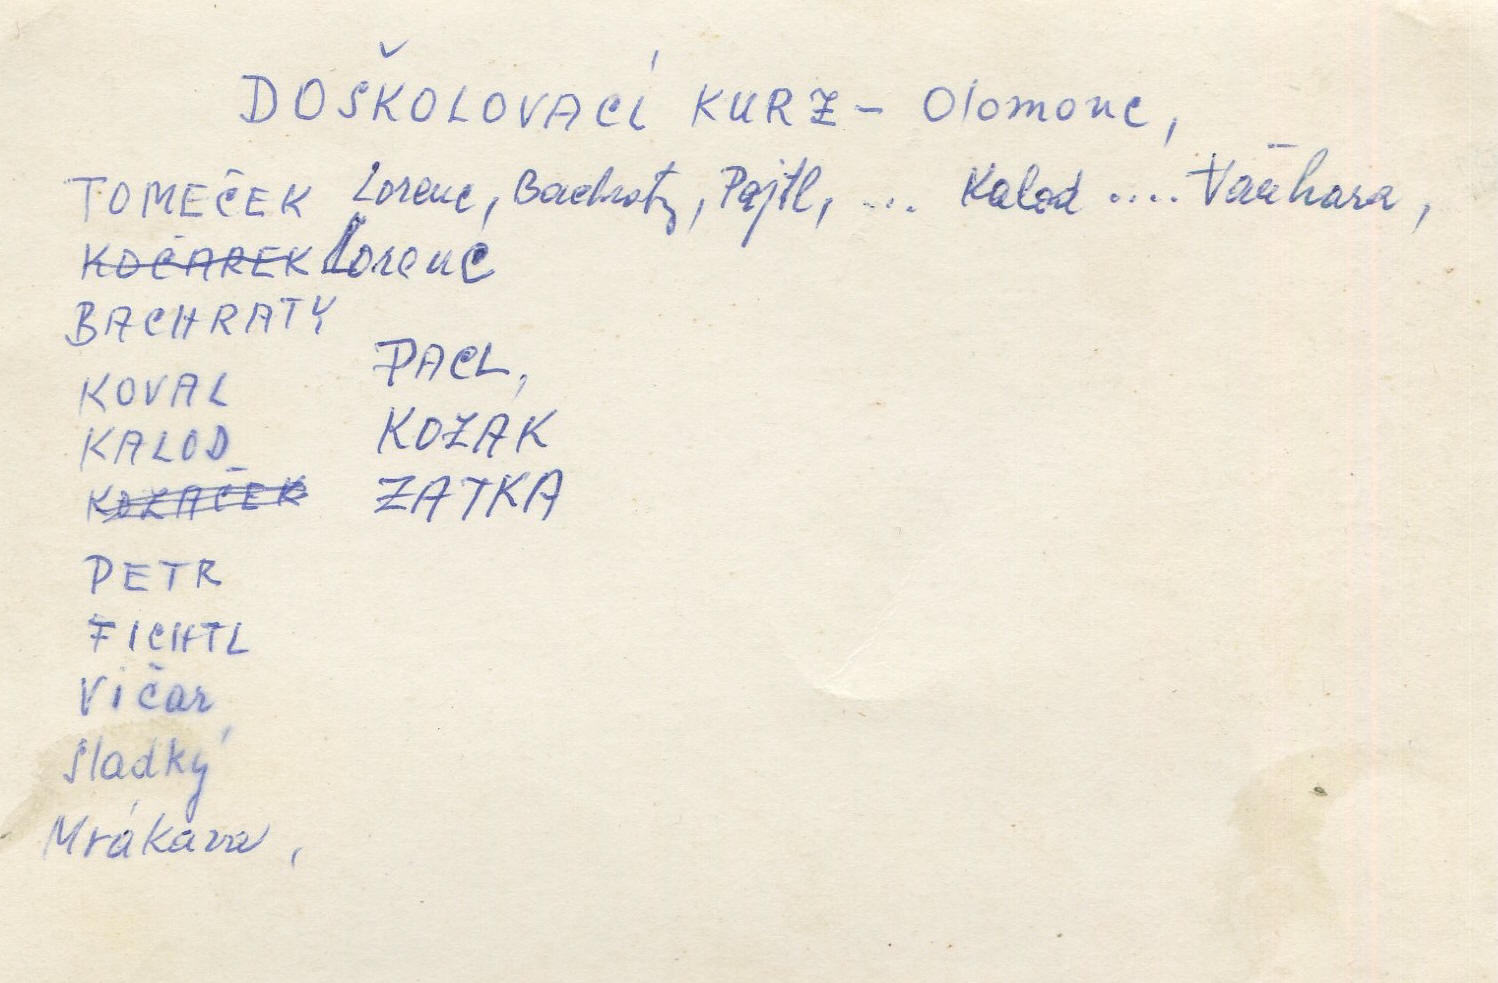 DOŠKOLOVACÍ KURZ - Olomouc,
TOMEČEK Lorenc, Bachratý, Pajtl, ... Kalod .... Vaňhara,
KOČAREK Lorenc
BACHRATY
PACL,
KOVAL
KOZAK
KALOD
KOZAČEK ZATKA
PETR
FICHTL
Vičar
Sladký
Mrákava,